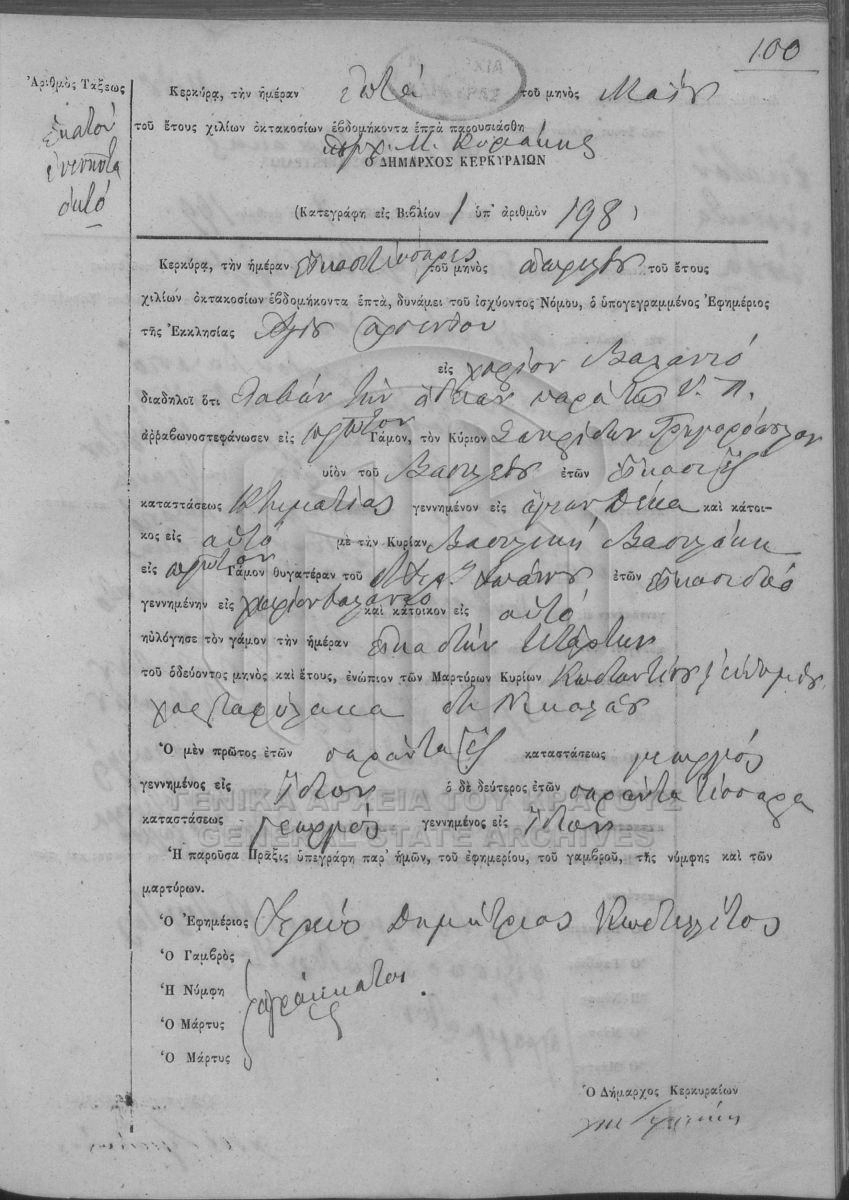 100
Ἀριθμὸς Τάξεως
ἑκατόν
ἐνενῆντα
ὀκτό
Κερκύρα, τὴν ἡμέραν ἑπτά τοῦ μηνὸς Μαΐου
τοῦ ἔτους χιλίων ὀκτακοσίων ἑβδομήκοντα ἑπτὰ παρουσιάσθη
Μ. Κυριάκης
Ὁ ΔΗΜΑΡΧΟΣ ΚΕΡΚΥΡΑΙΩΝ
(Κατεγράφη εἰς Βιβλίον 1 ὑπ' ἀριθμὸν 198)
Κερκύρα, τὴν ἡμέραν εἰκοστέσσαρες τοῦ μηνὸς ἀπριλίου τοῦ ἔτους
χιλίων ὀκτακοσίων ἑβδομήκοντα ἑπτά, δυνάμει τοῦ ἰσχύοντος Νόμου, ὁ ὑπογεγραμμένος Ἐφημέριος
τῆς Ἐκκλησίας Ἁγίου
εἰς χωρίον Βαλανιό
διαδηλοῖ ὅτι λαβὼν τὴν ἄδειαν παρὰ
ἀρραβωνοστεφάνωσεν εἰς πρῶτον Γάμον, τὸν Κύριον Σπυρίδων Γρηγορόπουλον
υἱὸν τοῦ Βασιλείου ἐτῶν εἴκοσι ἕξ
καταστάσεως Κτηματίας γεννημένον εἰς ἁγίαν Δέκα καὶ κάτοι-
κος εἰς αὐτό μὲ τὴν Κυρίαν Βασιλική Βασιλάκη
εἰς πρῶτον Γάμον θυγατέραν τοῦ Ἰωάννου ἐτῶν εἴκοσι δύο
γεννημένην εἰς χωρίον Βαλανιό καὶ κάτοικον εἰς αὐτό
ηὐλόγησε τὸν γάμον τὴν ἡμέραν εἰκοστήν τετάρτην
τοῦ ὁδεύοντος μηνὸς καὶ ἔτους, ἐνώπιον τῶν Μαρτύρων Κυρίων Κωσταντίνου
χαρτοφύλακα Νικολάου
Ὁ μὲν πρῶτος ἐτῶν σαράντα ἕξ καταστάσεως γεωργός
γεννημένος εἰς ὁ δὲ δεύτερος ἐτῶν σαράντα τέσσαρα
καταστάσεως γεωργός γεννημένος εἰς
ΓΕΝΙΚΑ ΑΡΧΕΙΑ ΤΟΥ ΚΡΑΤΟΥΣ
GENERAL STATE ARCHIVES
Ἡ παροῦσα Πρᾶξις ὑπεγράφη παρ' ἡμῶν, τοῦ ἐφημερίου, τοῦ γαμβροῦ, τῆς νύμφης καὶ τῶν
μαρτύρων.
Ὁ Ἐφημέριος Ἱερεύς Δημήτριος Κωστελέτος
Ὁ Γαμβρὸς
Ἡ Νύμφη ἀγράμματοι
Ὁ Μάρτυς
Ὁ Μάρτυς
Ὁ Δήμαρχος Κερκυραίων